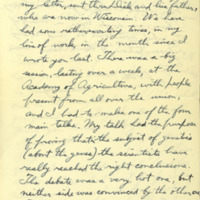 my letter, sent thru Dick and his father,
who are now in Wisconsin. We have
had some rather exciting times, in my
line of work, in the month since I
wrote you last. There was a big
session, lasting over a week, at the
Academy of Agriculture, with people
present from all over the union,
and I had to make one of the four
main talks. My talk had the purpose
of proving that the subject of genetics
(about the genes) the scientists have
really reached the right conclusions.
The debate was a very hot one, but
neither side was convinced by the other, on